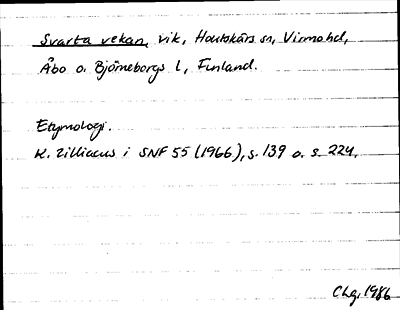 Svarta vekan, vik, Houtskärs sn, Virmo hd,
Åbo o. Björneborgs l, Finland.
Etymologi.
K. Zilliacus i SNF 55 (1966), s. 139 o. s. 224.
CLg, 1986